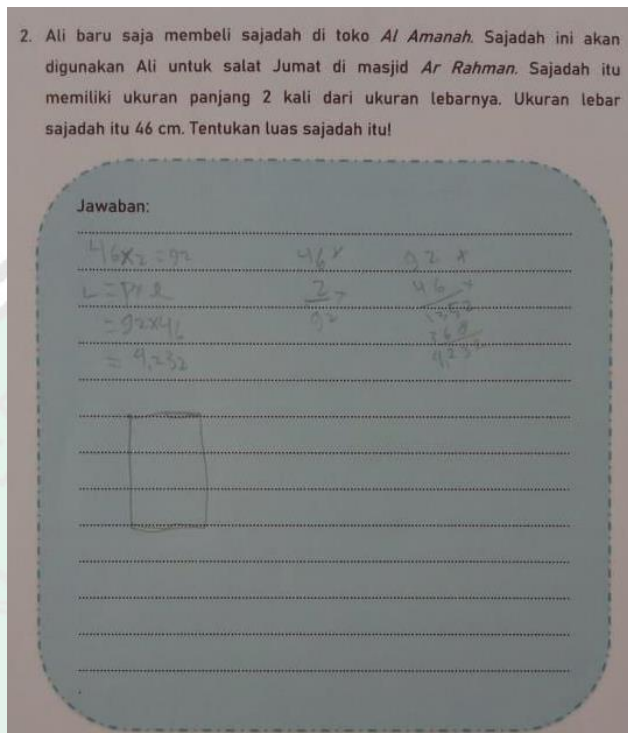 2. Ali baru saja membeli sajadah di toko Al Amanah. Sajadah ini akan
digunakan Ali untuk salat Jumat di masjid Ar Rahman. Sajadah itu
memiliki ukuran panjang 2 kali dari ukuran lebarnya. Ukuran lebar
sajadah itu 46 cm. Tentukan luas sajadah itu!
Jawaban:
46x2=92
L = p x l
= 92x46
= 4,232
46 x
2
92
92 x
46 x
4,232